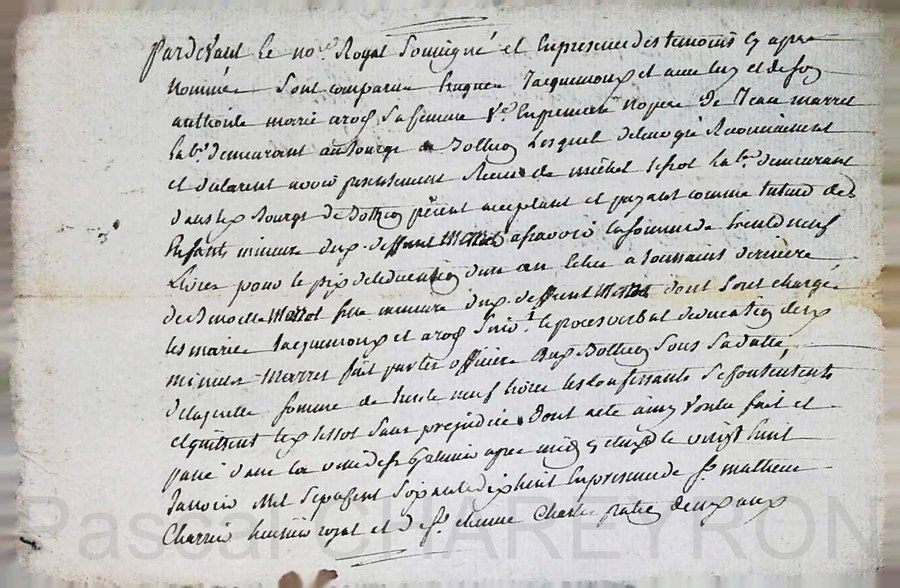 pardevant le nore Royal soussigné et En presence des temoins cy apres
Nommés sont comparus hugues Jacquemoux et avec luy et de soy
authorisé marie arod sa femme Ve En premiere nopce de Jean marret
labr demeurant au bourg de Bothéo Lesquels de leur gré Reconnoissent
et declarent avoir presentement Receu de michel lesot labr demeurant
dans led Bourg de Bothéo présent acceptant et payant comme tuteur des
Enfants mineurs dud deffunt marret a scavoir la somme de trente neuf
Livres pour le prix de leducation dune année Echue a toussaints derniere
de Benoitte marret fille mineure dud deffunt marret dont sont chargés
les mariés Jacquemoux et arod suivt le proces verbal deducation desd
mineurs marret fait par les officiers dud Bothéo sous sa datte,
de laquelle somme de trente neuf livres les confessants se contentent
et quittent led lesot sans prejudice dont acte ainsy voulu fait et
passé dans la ville de st Galmier apres midy le vingt huit
Janvier mil sept cent soixante dix huit En presence de sr mathieu
Charrin huissier royal et de sr etienne Charles praticien deux aux
Pascal CHAREYRON